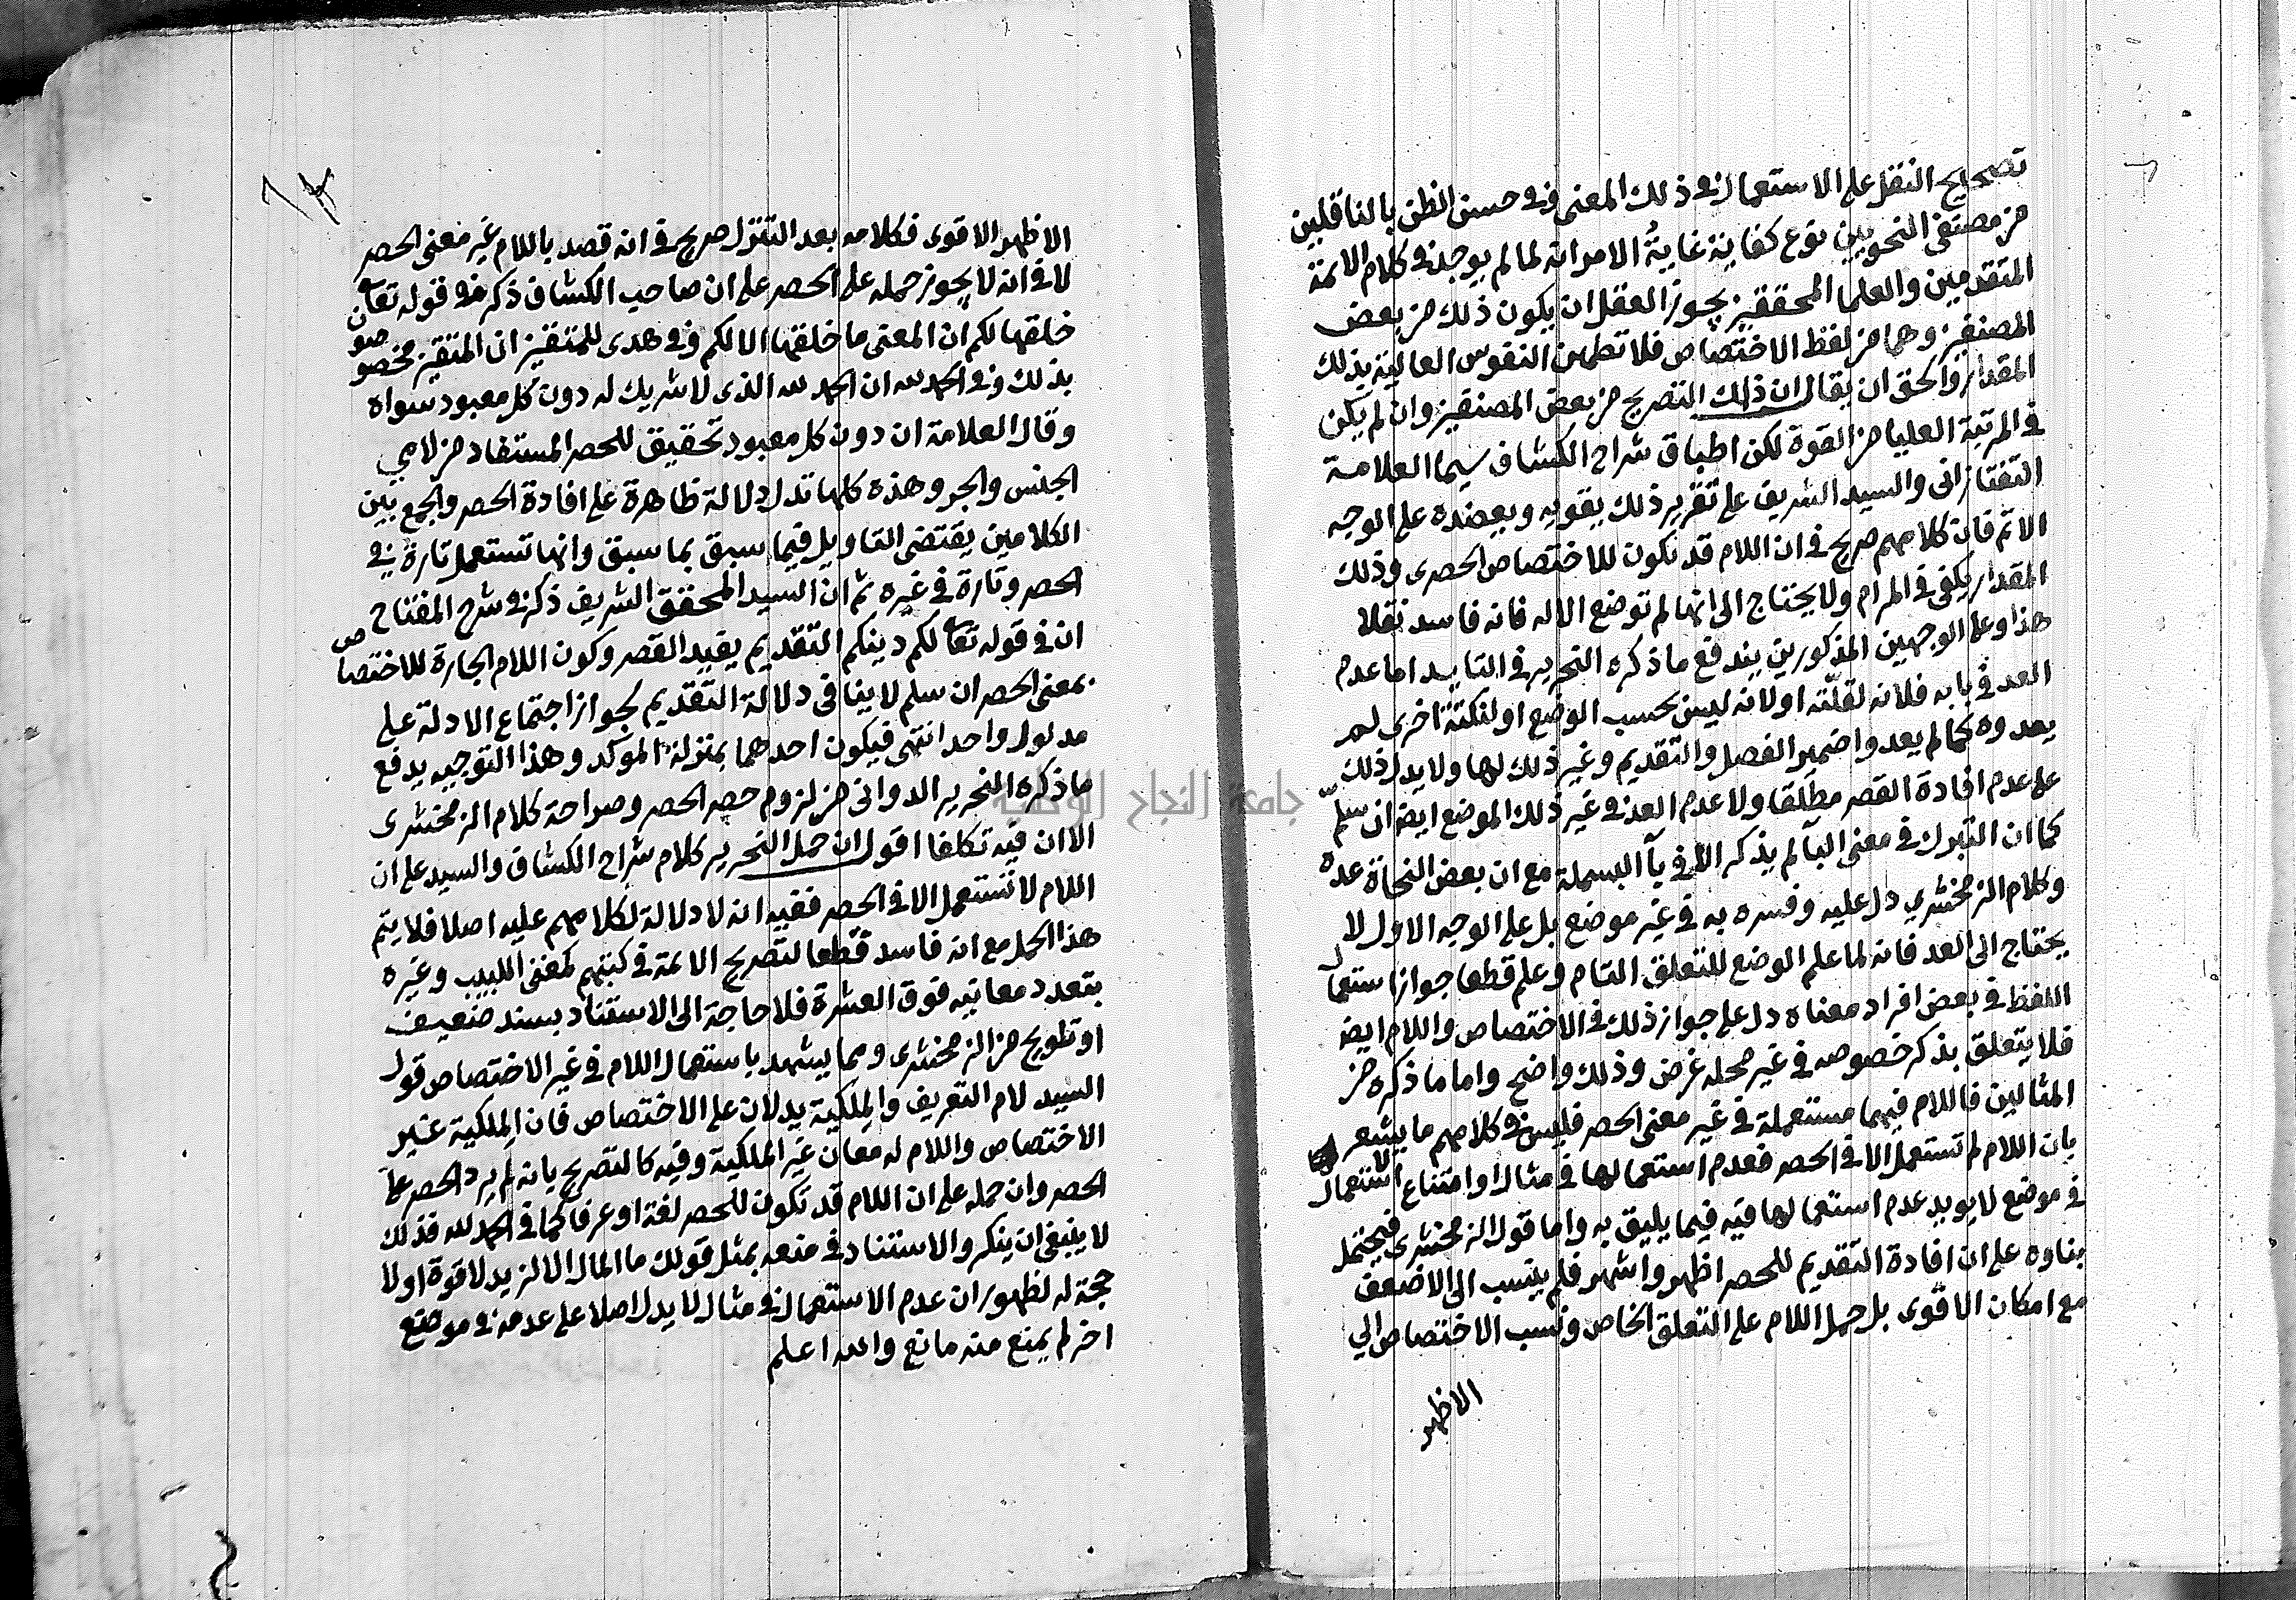 تصحيح النقل على الاستعمال في ذلك المعنى وفي حسن الظن بالناقلين
من مصنفي النحويين نوع كفاية غاية الامر انه لما لم يوجد في كلام الائمة
المتقدمين والعلما المحققين يجوز العقل ان يكون ذلك من بعض
المصنفين وهما من لفظ الاختصاص فلا تطمئن النفوس العالية بذلك
المقدار والحق ان يقال ان ذلك التصريح من بعض المصنفين وان لم يكن
في المرتبة العليا من القوة لكن اطباق شراح الكشاف سيما العلامة
التفتازاني والسيد الشريف على تقرير ذلك يقويه ويعضده على الوجه
الاتم فان كلامهم صريح في ان اللام قد تكون للاختصاص الحصري وذلك
المقدار يكفي في المرام ولا يحتاج الى انها لم توضع الا له فانه فاسد نقلا
هذا وعلى الوجهين المذكورين يندفع ما ذكره النحرير في التاييد اما عدم
العد في بابه فلانه لقلته او لانه ليس بحسب الوضع او لنكتة اخرى لم
يعدوه كما لم يعدوا ضمير الفصل والتقديم وغير ذلك لها ولا يدل ذلك
على عدم افادة القصر مطلقا ولا عدم العد في غير ذلك الموضع ايضا ان سلم
كما ان التبرك في معنى البآ لم يذكر الا في بآ البسملة مع ان بعض النحاة عده
وكلام الزمخشري دل عليه وفسره به في غير موضع بل على الوجه الاول لا
يحتاج الى العد فانه لما علم الوضع للتعلق التام وعلم قطعا جواز استعمال
اللفظ في بعض افراد معناه دل على جواز ذلك في الاختصاص واللام ايض
فلا يتعلق بذكر خصوصه في غير محله غرض وذلك واضح واما ما ذكره من
المثالين فاللام فيهما مستعملة في غير معنى الحصر فليس في كلامهم ما يشعر
بان اللام لم تستعمل الا في الحصر فعدم استعمالها في مثال او امتناع الاستعمال
في موضع لا يويد عدم استعمالها فيه فيما يليق به واما قول الزمخشري فيحتمل
بناوه على ان افادة التقديم للحصر اظهر واشهر فلم ينسب الى الاضعف
مع امكان الاقوى بل حمل اللام على التعلق الخاص ونسب الاختصاص الى
الاظهر
الاظهر الاقوى فكلامه بعد التنزل صريح في انه قصد باللام غير معنى الحصر
لا في انه لا يجوز حمله على الحصر على ان صاحب الكشاف ذكر في قوله تعا
خلقها لكم ان المعنى ما خلقها الا لكم وفي هدى للمتقين ان المتقين مخصوصون
بذلك وفي الحمد لله ان الحمد لله الذي لا شريك له دون كل معبود سواه
وقال العلامة ان دون كل معبود تحقيق للحصر المستفاد من لامي
الجنس والجر وهذه كلها تدل دلالة ظاهرة على افادة الحصر والجمع بين
الكلامين يقتضي التاويل فيما سبق بما سبق وانها تستعمل تارة في
الحصر وتارة في غيره ثم ان السيد المحقق الشريف ذكر في شرح المفتاح
ان في قوله تعا لكم دينكم التقديم يفيد القصر وكون اللام الجارة للاختصاص
بمعنى الحصر ان سلم لا ينافي دلالة التقديم لجواز اجتماع الادلة على
مدلول واحد انتهى فيكون احدهما بمنزلة الموكد وهذا التوجيه يدفع
ما ذكره النحرير الدواني من لزوم حصر الحصر وصراحة كلام الزمخشري
الا ان فيه تكلفا اقول ان حمل النحرير كلام شراح الكشاف والسيد على ان
اللام لا تستعمل الا في الحصر ففيه انه لا دلالة لكلامهم عليه اصلا فلا يتم
هذا الحمل مع انه فاسد قطعا لتصريح الائمة في كتبهم كمغنى اللبيب وغيره
بتعدد معانيه فوق العشرة فلا حاجة الى الاستناد بسند ضعيف
او تلويح من الزمخشري ومما يشهد باستعمال اللام في غير الاختصاص قول
السيد لام التعريف والملكية يدلان على الاختصاص فان الملكية غير
الاختصاص واللام له معان غير الملكية وفيه كالتصريح بانه لم يرد الحصر على
الحصر وان حمله على ان اللام قد تكون للحصر لغة او عرفا كما في الحمد لله فذلك
لا ينبغي ان ينكر والاستناد في منعه بمثل قولك ما المال الا لزيد لا قوة اولا
حجة له لظهور ان عدم الاستعمال في مثال لا يدل اصلا على عدمه في موضع
اخر لم يمنع منه مانع والله اعلم
جامعة النجاح الوطنية